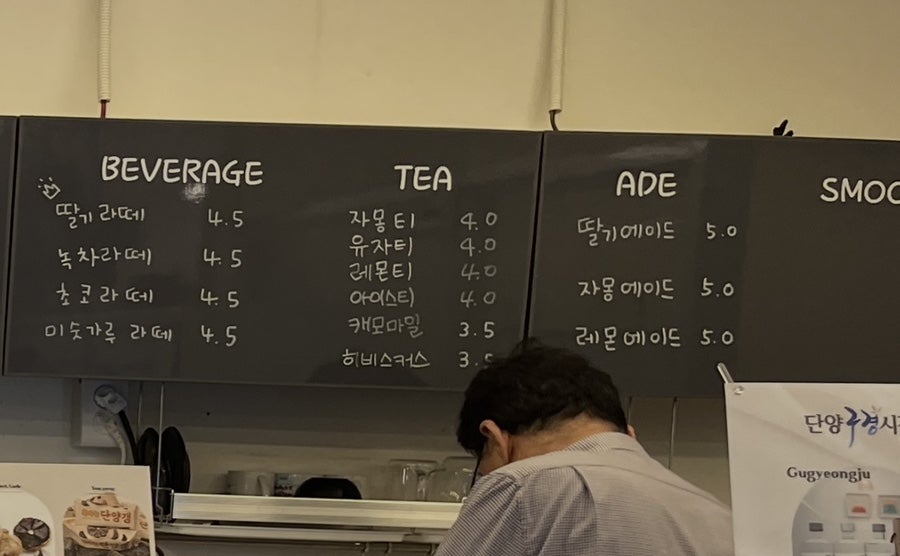 BEVERAGE
딸기라떼 4.5
녹차라떼 4.5
초코라떼 4.5
미숫가루 라떼 4.5
TEA
자몽티 4.0
유자티 4.0
레몬티 4.0
아이스티 4.0
캐모마일 3.5
히비스커스 3.5
ADE
딸기에이드 5.0
자몽에이드 5.0
레몬에이드 5.0
SMOO
단양구경시
Gugyeongju
단양갱